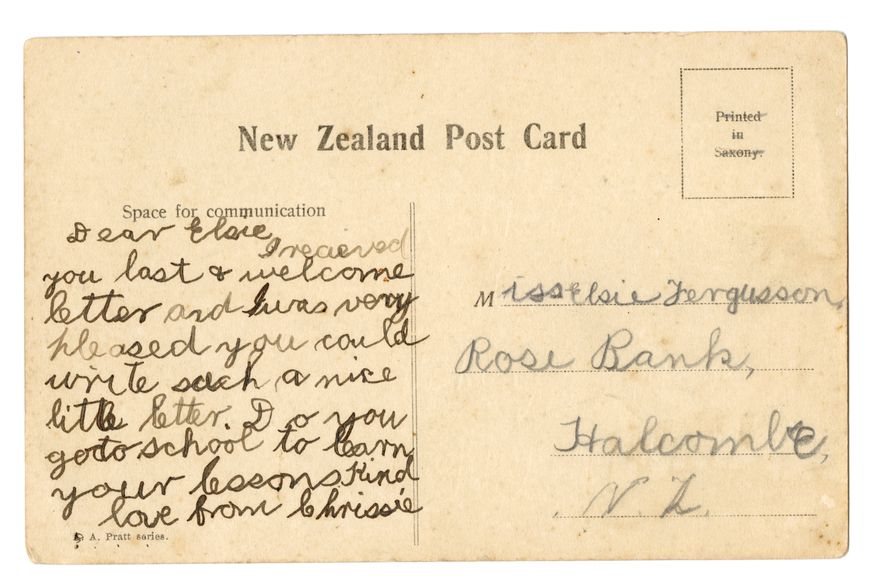 New Zealand Post Card
Printed
in
Saxony.
Space for communication
Dear Elsie
I recieved
you last & welcome
letter and I was very
pleased you could
write such a nice
little letter. Do you
go to school to learn
your lessons Kind
love from Chrissie
A. Pratt series.
Miss Elsie Fergusson,
Rose Bank,
Halcombe,
N. Z.